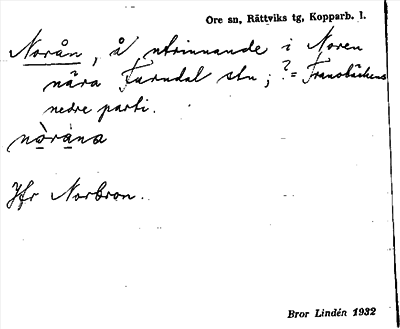 Ore sn, Rättviks tg, Kopparb. l.
Norån, å utrinnande i Noren
nära Furudal stn; ?= Fransbäckens
nedre parti.
nòràna
Jfr Norbron.
Bror Lindén 1932